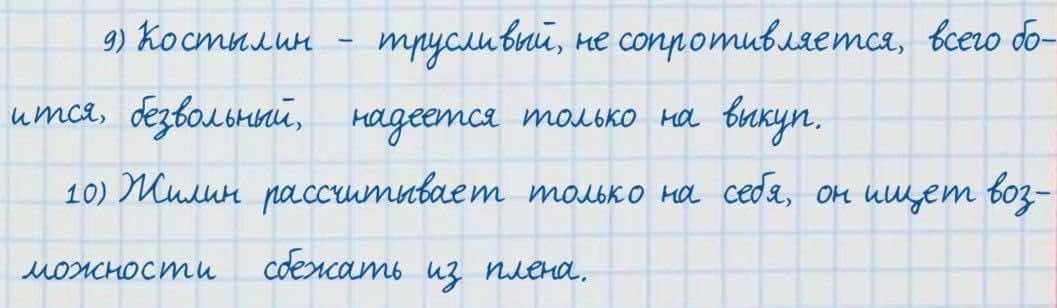 9) Костылин - трусливый, не сопротивляется, всего бо-
ится, безвольный, надеется только на выкуп.
10) Жилин рассчитывает только на себя, он ищет воз-
можности сбежать из плена.